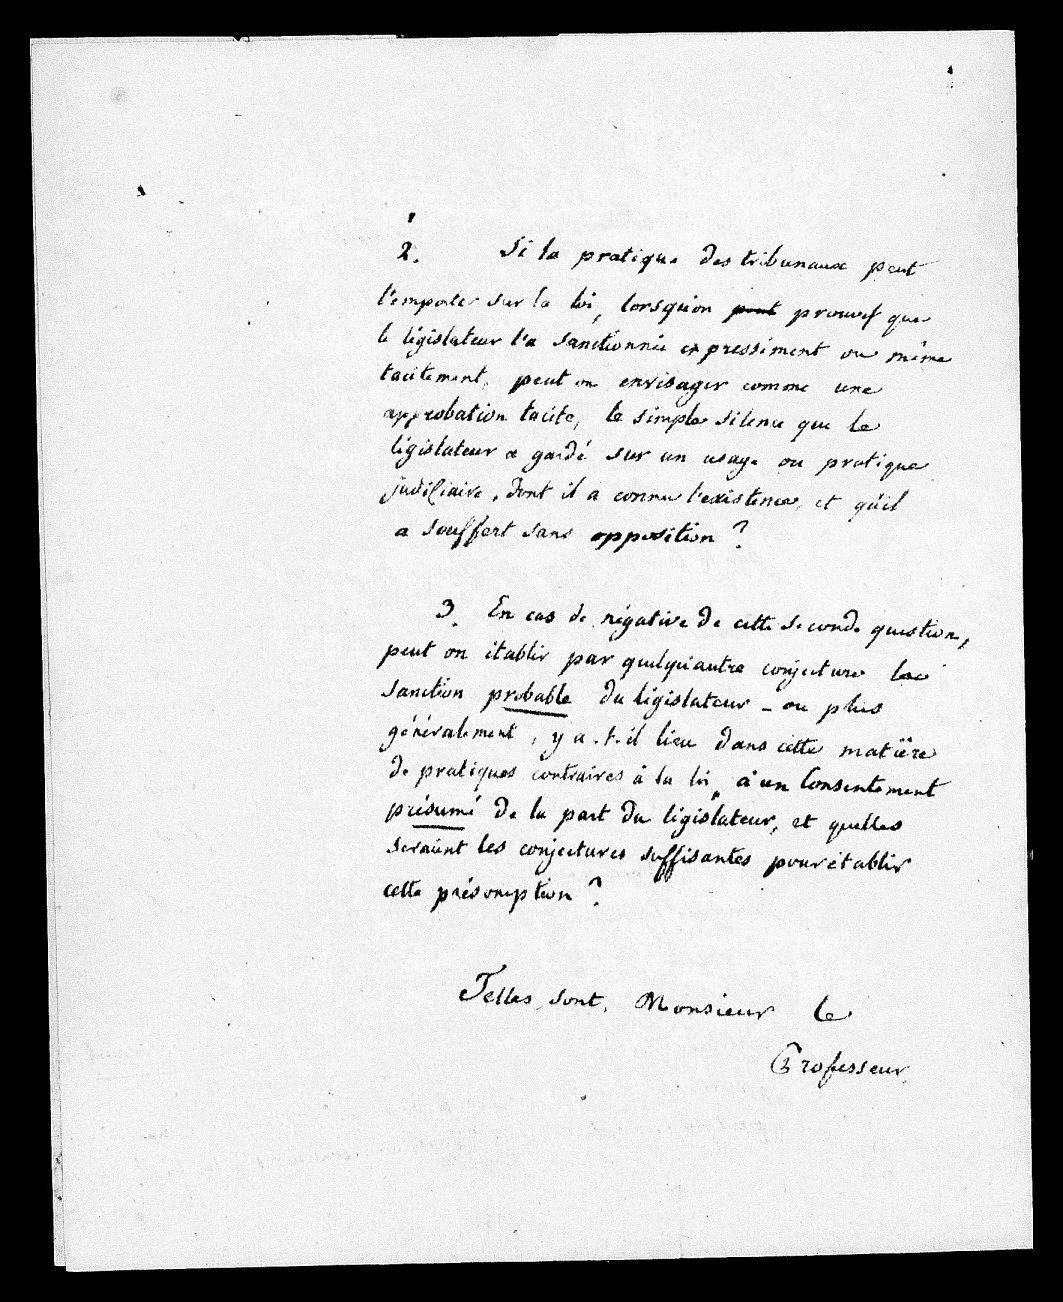 2. Si la pratique des tribunaux peut
l'emporter sur la loi, lorsqu'on peut prouver que
le législateur l'a sanctionnée expressément ou même
tacitement, peut on envisager comme une
approbation tacite, le simple silence que le
législateur a gardé sur un usage ou pratique
judiciaire, dont il a connu l'existence, et qu'il
a souffert sans opposition ?
3. En cas de négative de cette seconde question,
peut on établir par quelqu'autre conjecture la
sanction probable du législateur – ou plus
généralement, y a-t-il lieu dans cette matière
de pratiques contraires à la loi, à un Consentement
présumé de la part du législateur, et quelles
seraient les conjectures suffisantes pour établir
cette présomption ?
Telles sont, Monsieur le
Professeur,